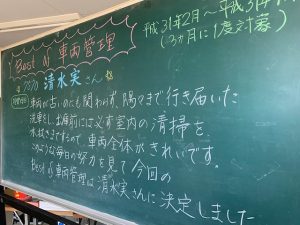 Best of 車両管理
平成31年2月～平成31年
(3ヵ月に1度対象)
清水実さん
車両が古いのにも関わらず、隅々まで行き届いた
洗車をし、出庫前には必ず室内の清掃を
水拭きでするので、車両全体がきれいです。
このような毎日の努力を見て今回の
Best of 車両管理は清水実さんに決定しました